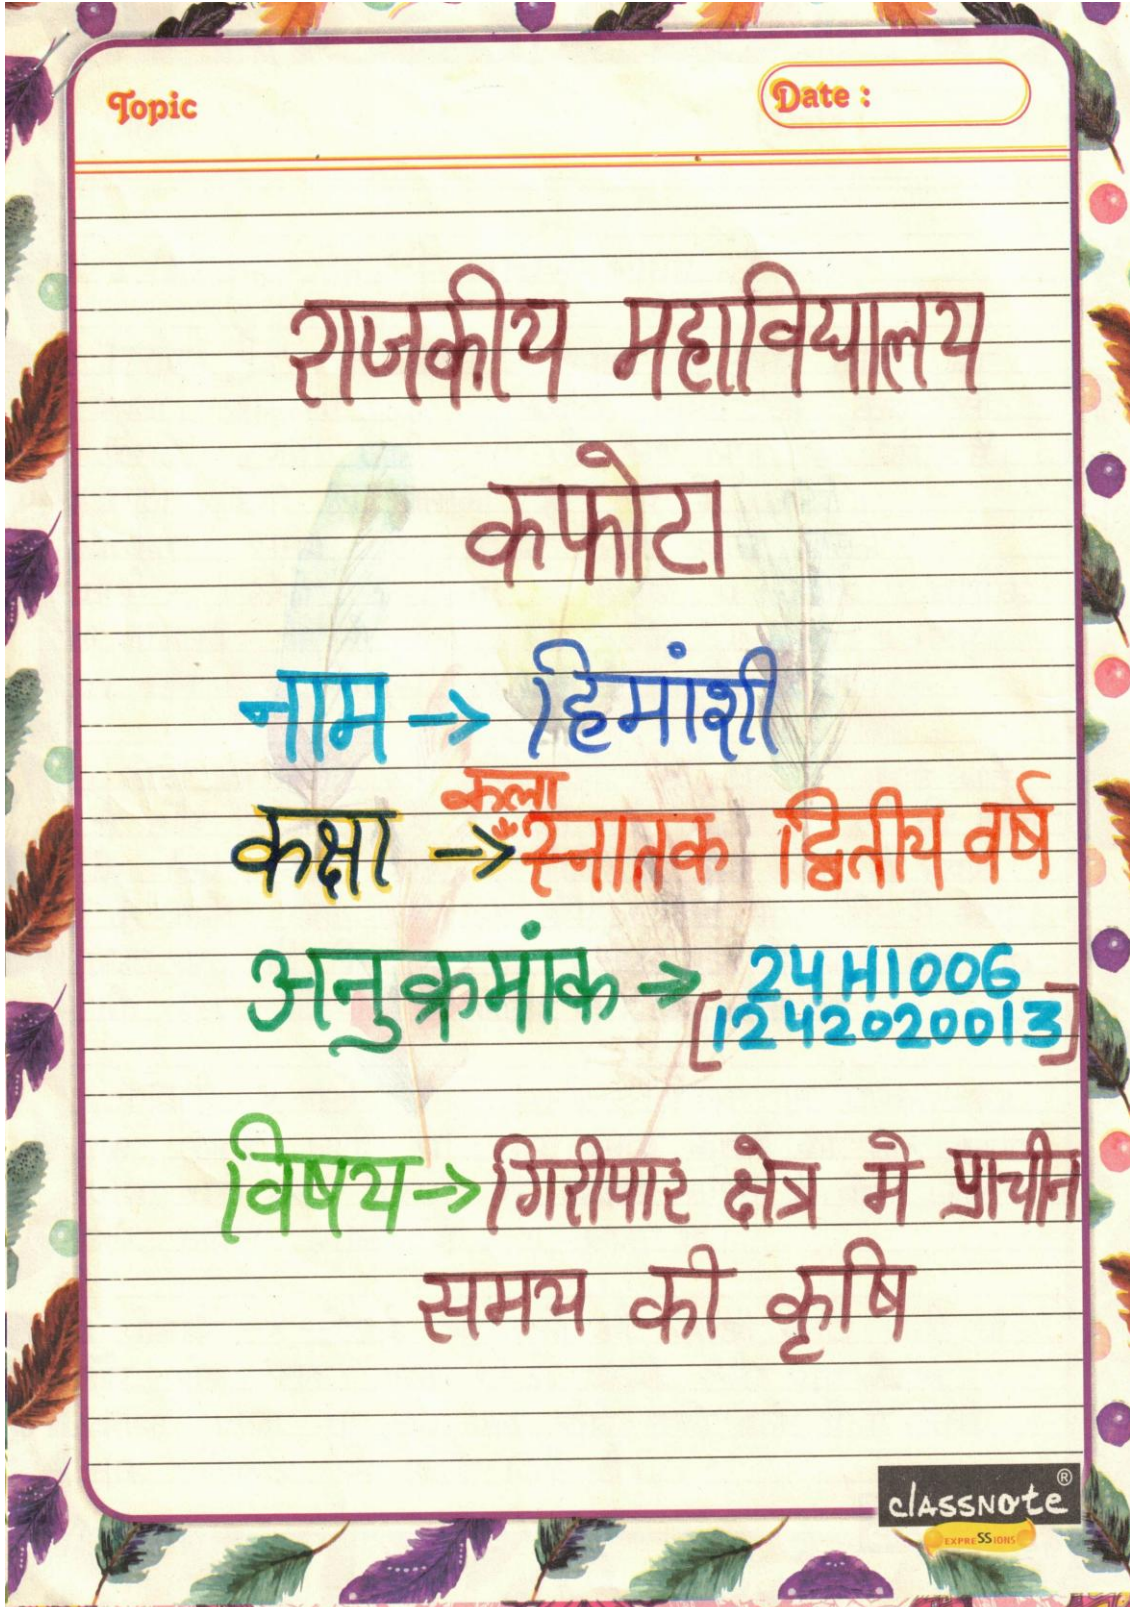 Topic
Date :
राजकीय महाविद्यालय
कफोटा
नाम → हिमांशी
कला
कक्षा → स्नातक द्वितीय वर्ष
अनुक्रमांक → 24H1006
[1242020013]
विषय → गिरीपार क्षेत्र मे प्राचीन
समय की कृषि
classnote ®
EXPRESSIONS